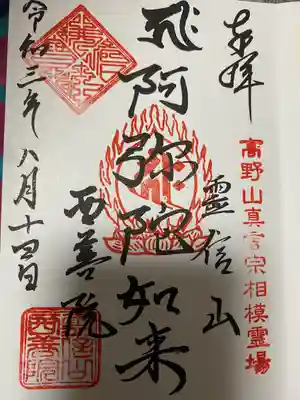 奉拝
高野山真言宗相模霊場
霊信山
飛阿弥陀如来
西善院
令和三年八月十四日